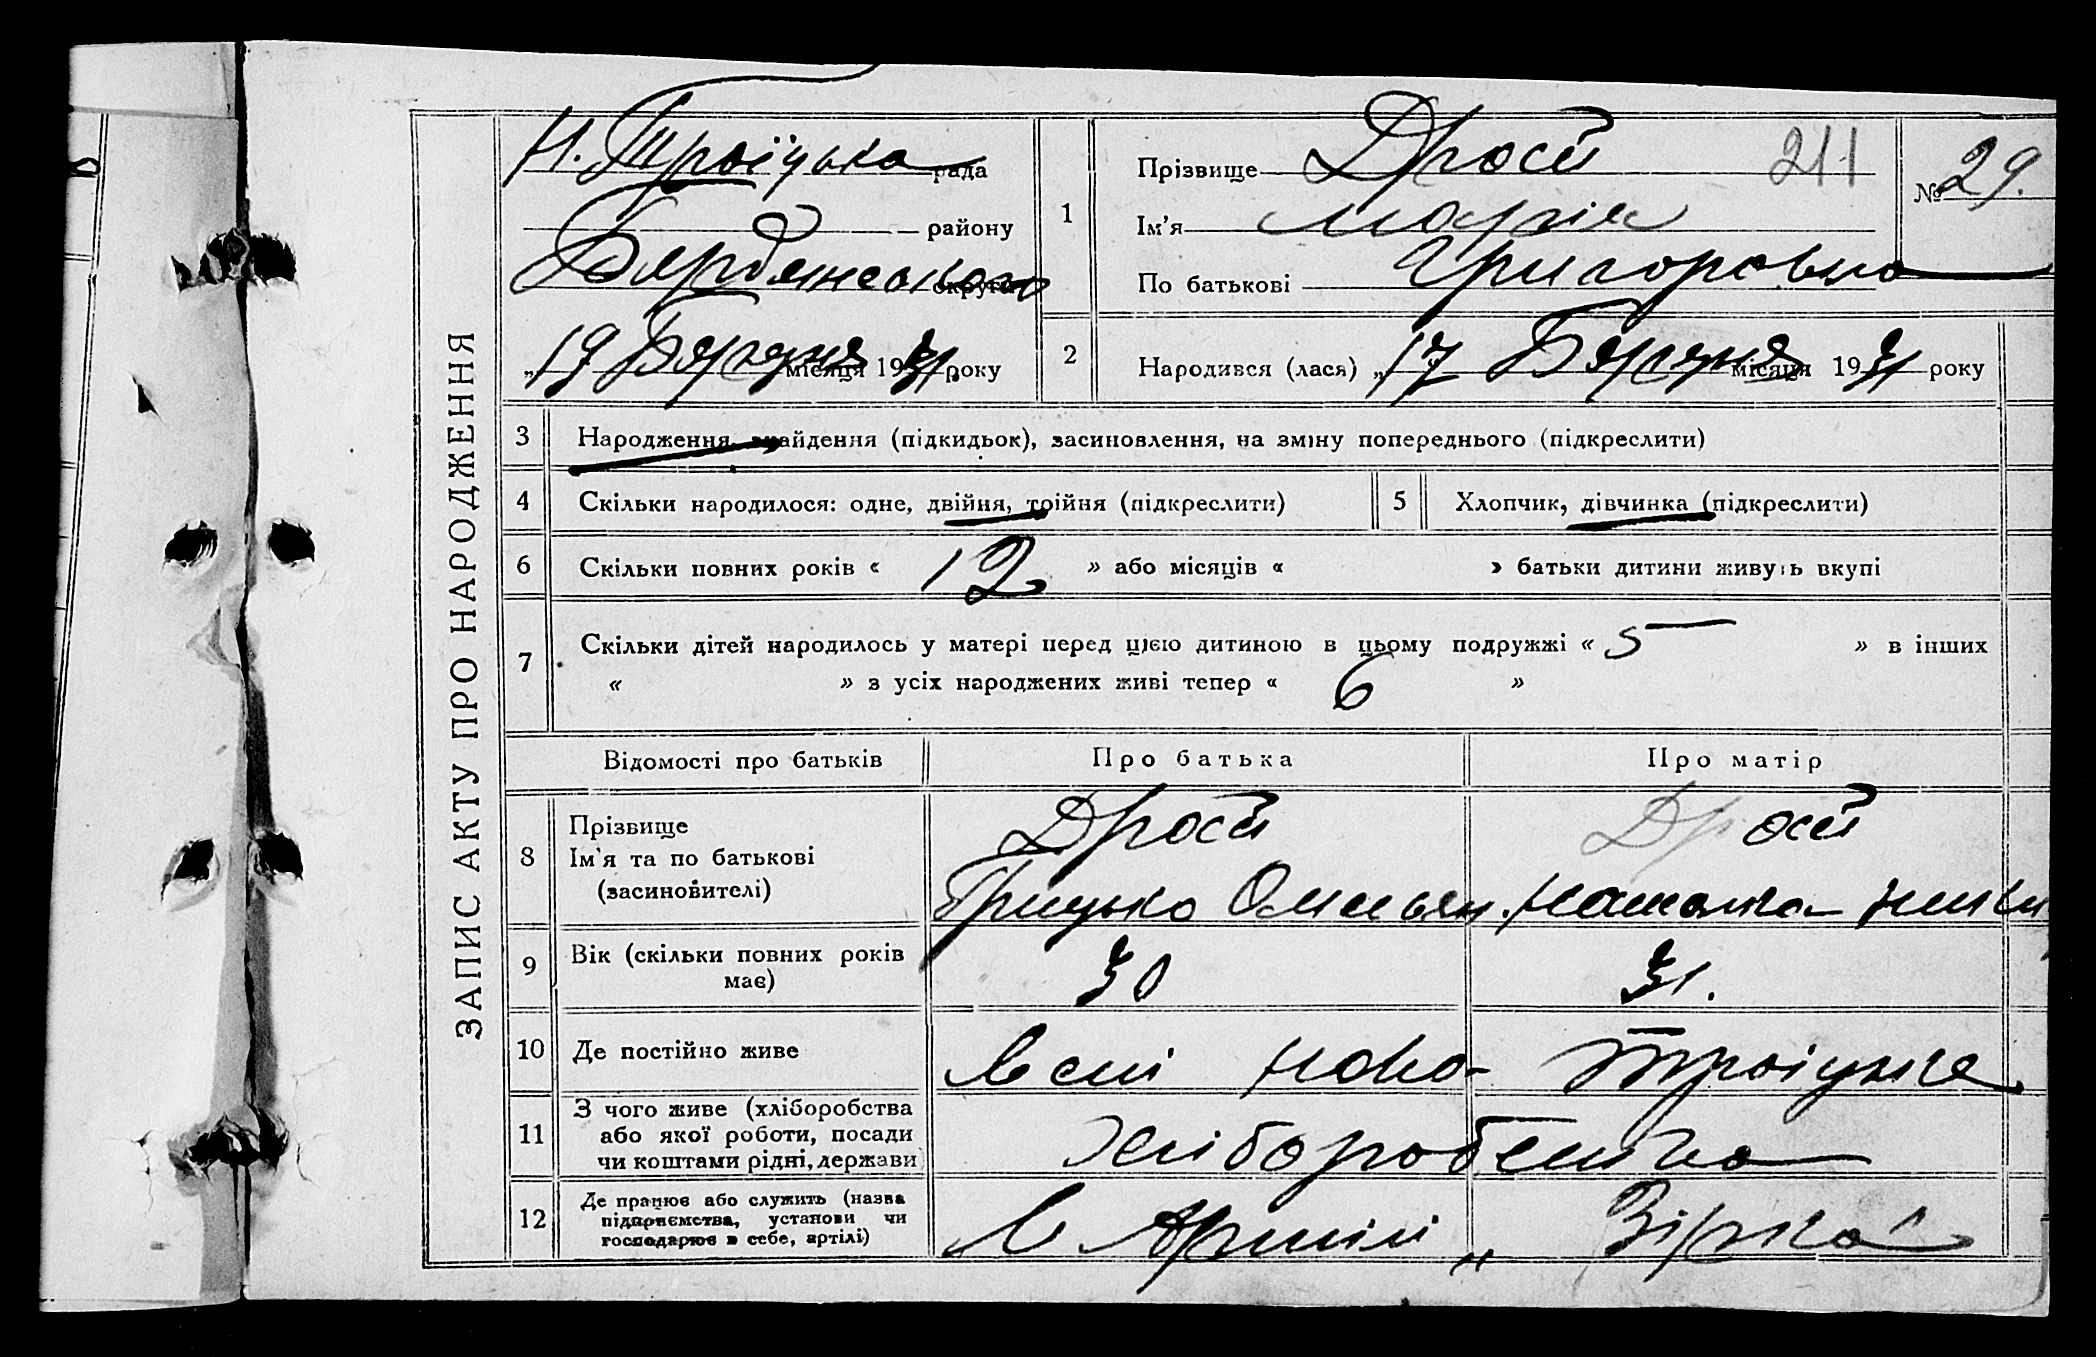 ЗАПИС АКТУ ПРО НАРОДЖЕННЯ
Н. Троїцька рада
району
Бердянського округи
„19 Березня місяця 1931 року
1
Прізвище Дросй 211
№ 29.
Ім’я Марія
По батькові Григоровна
2
Народився (лася) „17 Березня місяця 1931 року
3 Народження, знайдення (підкидьок), засиновлення, на зміну попереднього (підкреслити)
4 Скільки народилося: одне, двійня, трійня (підкреслити)
5 Хлопчик, дівчинка (підкреслити)
6 Скільки повних років « 12 » або місяців « » батьки дитини живуть вкупі
7 Скільки дітей народилось у матері перед цією дитиною в цьому подружжі « 5 » в інших
« » з усіх народжених живі тепер « 6 »
Відомості про батьків Про батька Про матір
8 Прізвище
Ім’я та по батькові
(засиновителі)
Дросй
Грицько Омельян.
Дросй
Наталка
9 Вік (скільки повних років
має)
30 31.
10 Де постійно живе
в селі Ново-Троіцьке
11 З чого живе (хліборобства
або якої роботи, посади
чи коштами рідні, держави)
Хліборобство
12 Де працює або служить (назва
підприємства, установи чи
господарює в себе, артілі)
в Артілі „Зірка“